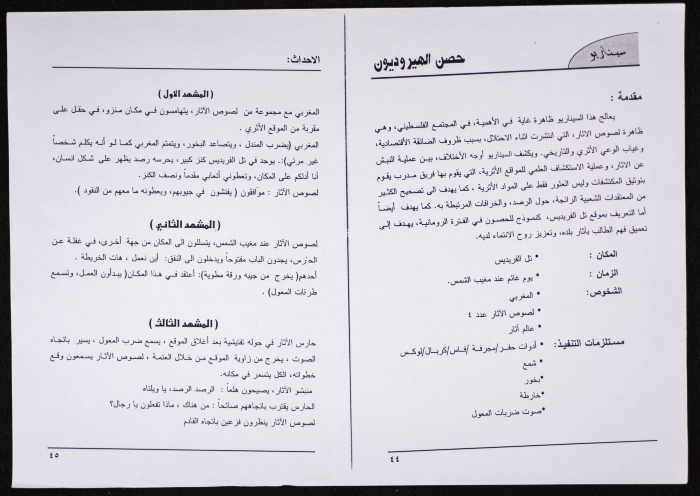 سينـاريو
حصن الهيروديون
مقدمة :
يعالج هذا السيناريو ظاهرة غاية في الأهمية، في المجتمع الفلسطيني، وهي
ظاهرة لصوص الآثار، التي انتشرت اثناء الاحتلال، بسبب ظروف الضائقة الأقتصادية،
وغياب الوعي الأثري والتاريخي. ويكشف السيناريو أوجه الأختلاف، بين عملية النبش
عن الاثار، وعملية الاستكشاف العلمي للمواقع الأثرية، التي يقوم بها فريق مدرب يقوم
بتوثيق المكتشفات وليس العثور فقط على المواد الأثرية ، كما يهدف الى تصحيح الكثير
من المعتقدات الشعبية الرائجة، حول الرصد، والخرافات المرتبطة به. كما يهدف أيضاً
أما التعريف بموقع تل الفريديس، كنموذج للحصون في الفترة الرومانية، يهدف إلى
تعميق فهم الطالب بآثار بلده، وتعزيز روح الانتماء لديه.
المكان : • تل الفريديس
الزمان : • يوم غائم عند مغيب الشمس.
الشخوص: • المغربي
• لصوص الآثار عدد ٤
• عالم آثار
مستلزمات التنفيذ: • أدوات حفر/مجرفة /فاس/كربال/لوكس
• شمع
•بخور
•خارطة
•صوت ضربات المعول
٤٤
الاحداث:
( المشهد الاول )
المغربي مع مجموعة من لصوص الآثار، يتهامسون في مكان منزو، في حقل على
مقربة من الموقع الأثري .
المغربي (يضرب المندل ، ويتصاعد البخور، ويتمتم المغربي كما لو أنه يكلم شخصاً
غير مرئي):. يوجد في تل الفريديس كنز كبير، يحرسه رصد يظهر على شكل انسان،
انا أدلكم على المكان، وتعطوني أتعابي مقدماً ونصف الكنز.
لصوص الآثار : موافقون ( يفتشون في جيوبهم، ويعطونه ما معهم من النقود ).
( المشهد الثاني )
لصوص الآثار عند مغيب الشمس، يتسللون الى المكان من جهة أخرى، في غفلة عن
الحارس، يجدون الباب مفتوحاً ويدخلون الى النفق: أين نعمل ، هات الخريطة .
أحدهم( يخرج من جيبه ورقة مطوية): أعتقد في هذا المكان( يبدأون العمل، وتسمع
طرقات المعول ) .
( المشهد الثالث )
حارس الآثار في جوله تفتيشية بعد أغلاق الموقع ، يسمع ضرب المعول ، يسير باتجاه
الصوت ، يخرج من زاوية الموقع من خلال العتمة ، لصوص الآثار يسمعون وقع
خطواته، الكل يتسمر في مكانه.
منبشو الآثار، يصيحون هلعاً : الرصد الرصد، يا ويلتاه
الحارس يقترب باتجاههم صائحاً : من هناك ، ماذا تفعلون يا رجال؟
لصوص الآثار ينظرون فزعين باتجاه القادم
٤٥